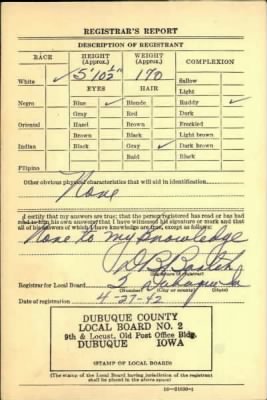 REGISTRAR'S REPORT
DESCRIPTION OF REGISTRANT
RACE HEIGHT (Approx.) WEIGHT (Approx.) COMPLEXION
5' 10½" 170
White ✓ Sallow
EYES HAIR Light
Negro Blue ✓ Blonde Ruddy ✓
Gray Red Dark
Oriental Hazel Auburn Freckled
Brown Brown Light brown
Indian Black Gray ✓ Dark brown
Bald Black
Filipino
Other obvious physical characteristics that will aid in identification
None
I certify that my answers are true; that the person registered has read or has had
read to him his own answers; that I have witnessed his signature or mark and that
all of his answers of which I have knowledge are true, except as follows:
None to my knowledge
(Signature of registrar)
Registrar for Local Board 2 Dubuque Ia
(Number) (City or county) (State)
Date of registration 4-27-42
DUBUQUE COUNTY
LOCAL BOARD NO. 2
9th & Locust, Old Post Office Bldg.
DUBUQUE IOWA
(STAMP OF LOCAL BOARD)
(The stamp of the Local Board having jurisdiction of the registrant
shall be placed in the above space.)